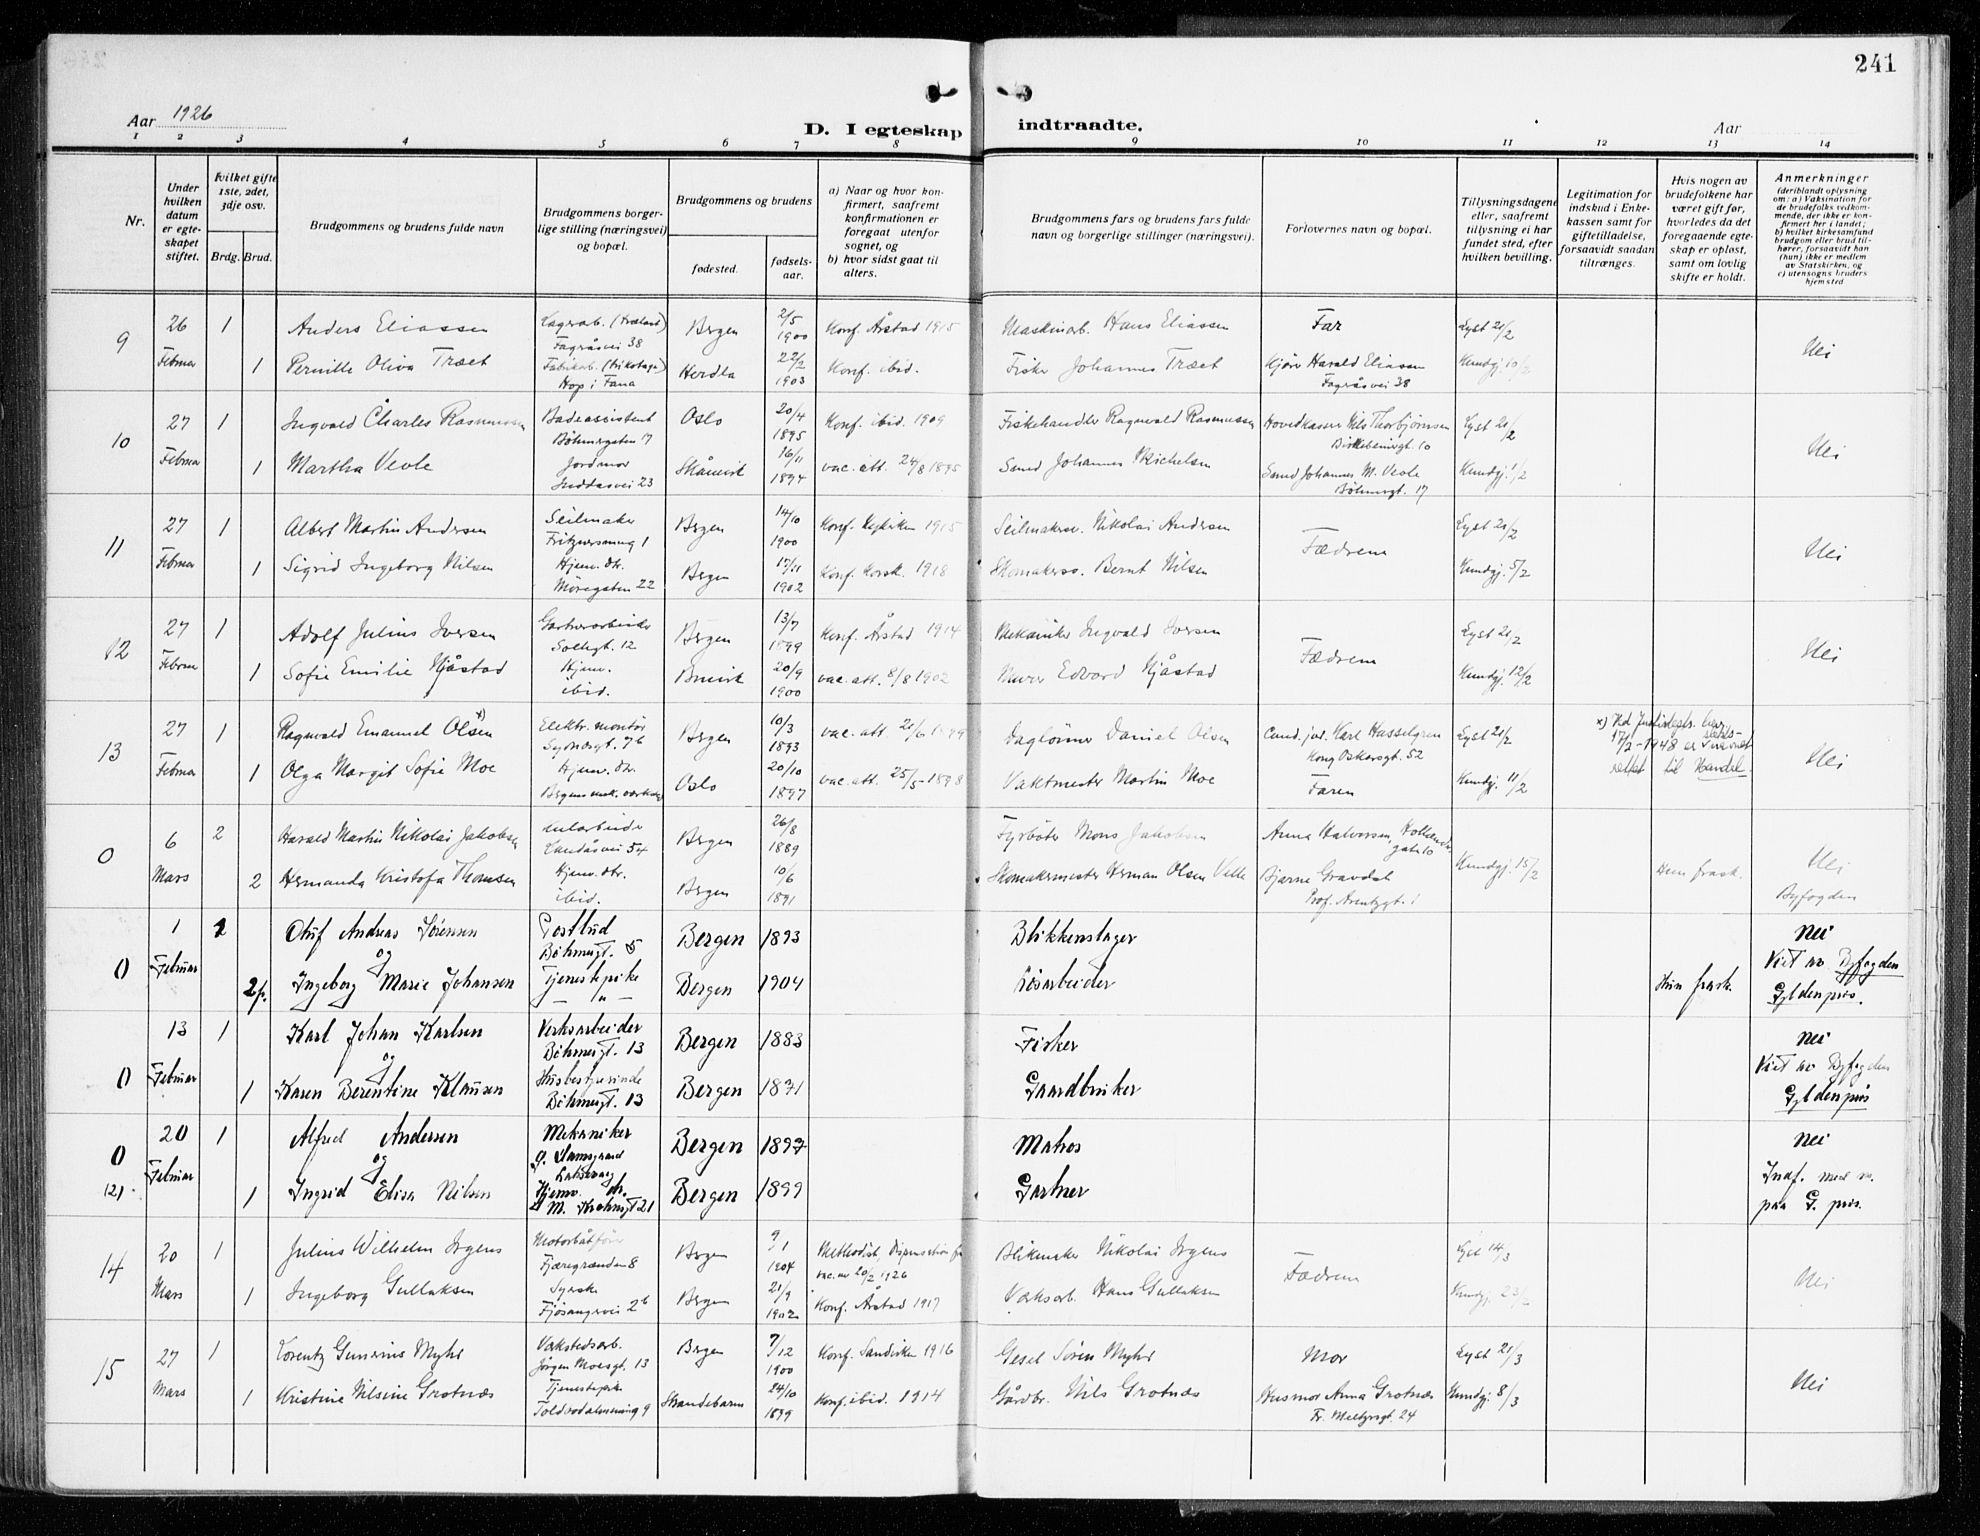 241
Aar 1926
D. I egteskap indtraadte.
Aar
1 2 3 4 5 6 7 8 9 10 11 12 13 14
Nr.
Under hvilken datum er egteskapet stiftet.
Hvilket gifte 1ste, 2det, 3dje osv.
Brdg. Brud.
Brudgommens og brudens fulde navn
Brudgommens borgerlige stilling (næringsvei) og bopæl.
Brudgommens og brudens
fødested.
fødselsaar.
a) Naar og hvor konfirmert, saafremt konfirmationen er foregaat utenfor sognet, og
b) hvor sidst gaat til alters.
Brudgommens fars og brudens fars fulde navn og borgerlige stillinger (næringsvei).
Forlovernes navn og bopæl.
Tillysningsdagene eller, saafremt tillysning ei har fundet sted, efter hvilken bevilling.
Legitimation for indskud i Enkekassen samt for giftetilladelse, forsaavidt saadan tiltrænges.
Hvis nogen av brudefolkene har været gift før, hvorledes da det foregaaende egteskap er opløst, samt om lovlig skifte er holdt.
Anmerkninger
(deriblandt oplysning om: a) Vaksination for de brudefolks vedkommende, der ikke er konfirmert her i landet;
b) hvilket kirkesamfund brudgom eller brud tilhører, forsaavidt han (hun) ikke er medlem av Statskirken, og
c) utensogns bruders hjemsted
9 26 Februar 1 Anders Eliassen Lagerarb. Fagråsvei 38 Bergen 2/5 1900 Konf. Årstad 1915 Maskinarb. Hans Eliassen Far Lyst 21/2 Nei
1 Pernille Oliva Træet Fabrikarb. (trikotage) Hop i Fana Herdla 22/2 1903 Konf. ibid. Fisker Johannes Træet Harald Eliassen Fagråsvei 38 Kundgj. 10/2
10 27 Februar 1 Ingvald Charles Rasmussen Badeassistent Böhmergaten 17 Oslo 20/4 1895 Konf. ibid. 1909 Fiskehandler Ragnvald Rasmussen Hovedkasserer Nils Thorbjørnsen Birkebeinergt. 10 Lyst 21/2 Nei
1 Martha Vevle Jordmor 23 Skånevik 16/11 1894 vac. att. 24/8 1895 Johannes Mickelsen Johannes M. Vevle Böhmergt. 17 Kundgj. 1/2
11 27 Februar 1 Albert Martin Andersen Seilmaker 1 Bergen 14/10 1900 Konf. 1915 Seilmakersv. Nikolai Andersen Fædrene Lyst 21/2 Nei
1 Sigrid Ingeborg Nilsen Hjem. dtr. Møregaten 22 Bergen 17/11 1902 Konf. Korsk. 1918 Skomakersv. Bernt Nilsen Kundgj. 5/2
12 27 Februar 1 Adolf Julius Iversen Gartnerarbeider Sollegt. 12 Bergen 13/7 1899 Konf. Årstad 1914 Mekaniker Ingvald Iversen Fædrene Lyst 21/2 Nei
1 Sofie Emilie Kjåstad Hjem. ibid. 20/9 1900 vac. att. 8/8 1902 Murer Edvard Kjåstad Kundgj. 12/2
13 27 Februar 1 Ragnvald Emanuel Olsen x) Elektr. montør 76 Bergen 10/3 1893 vac. att. 21/6 1899 Daglønner Daniel Olsen Cand. jur. Karl Hasselgren Kong Oskarsgt. 52 Lyst 21/2 x) Ved Justisdep. bev. 17/2-1948 er rettet til Handel. Nei
1 Olga Margit Sofie Moe Hjem. dtr. Bergens mek. verksted Oslo 20/10 1897 vac. att. 25/5-1898 Vaktmester Martin Moe Faren Kundgj. 11/2
0 6 Mars 2 Harald Martin Nikolai Jakobsen Landåsvei 54 Bergen 26/8 1889 Fyrbøter Mons Jakobsen Anna Halvorsen, Hollendergate 10 Kundgj. 15/2 Nei
2 Hermanda Kristofa Thomsen Hjem. dtr. ibid. Bergen 10/6 1891 Skomakermester Herman Olsen Velle Bjarne Gravdal Prof. Arentzgt. 1 Hun frask. Byfogden
0 1 Februar 2 Oluf Andreas Sørensen Postbud Böhmergt. 5 Bergen 1893 Blikkenslager Nei
og
2 f. Ingeborg Marie Johansen Tjenestepike — " — Bergen 1904 Løsarbeider Hun frask. Viet av Byfogden Gyldenpris.
0 13 Februar 1 Karl Johan Karlsen Verksarbeider Böhmergt. 13 Bergen 1883 Fisker Nei
og
1 Karen Berentine Klausen Husbestyrerinde Böhmergt. 13 Bergen 1871 Gaardbruker Viet av Byfogden Gyldenpris
0 (2) 20 Februar 1 Alfred Andersen Mekaniker g. Damsgaard Laksevaag Bergen 1897 Matros Nei
og
1 Ingrid Elisa Nilsen Hjemv. dt. M. Krohnsgt 21 Bergen 1899 Gartner Indf. med n. paa G. pris.
14 20 Mars 1 Julius Wilhelm Irgens Motorbåtfører Fjæregrænden 8 Bergen 9/1 1904 Methodist Dispensation for vac. av 20/2 1926 Blikmaker Nikolai Irgens Fædrene Lyst 14/3 Nei
1 Ingeborg Gullaksen Syerske Fjøsangervei 26 Bergen 21/9 1902 Konf. Årstad 1917 Verksarb. Hans Gullaksen Kundgj. 23/2
15 27 Mars 1 Lorentz Gunerius Myhr Verkstedsarb. Jørgen Moesgt. 13 Bergen 7/12 1900 Konf. Sandviken 1916 Gesel Søren Myhr Mor Lyst 21/3 Nei
1 Kristine Nilsine Grotnæs Tjenestepike Toldbodalmenning 9 Strandebarm 24/10 1899 Konf. ibid. 1914 Gårdbr. Nils Grotnæs Husmor Anna Grotnæs Fr. Meltzersgt. 24 Kundgj. 8/3